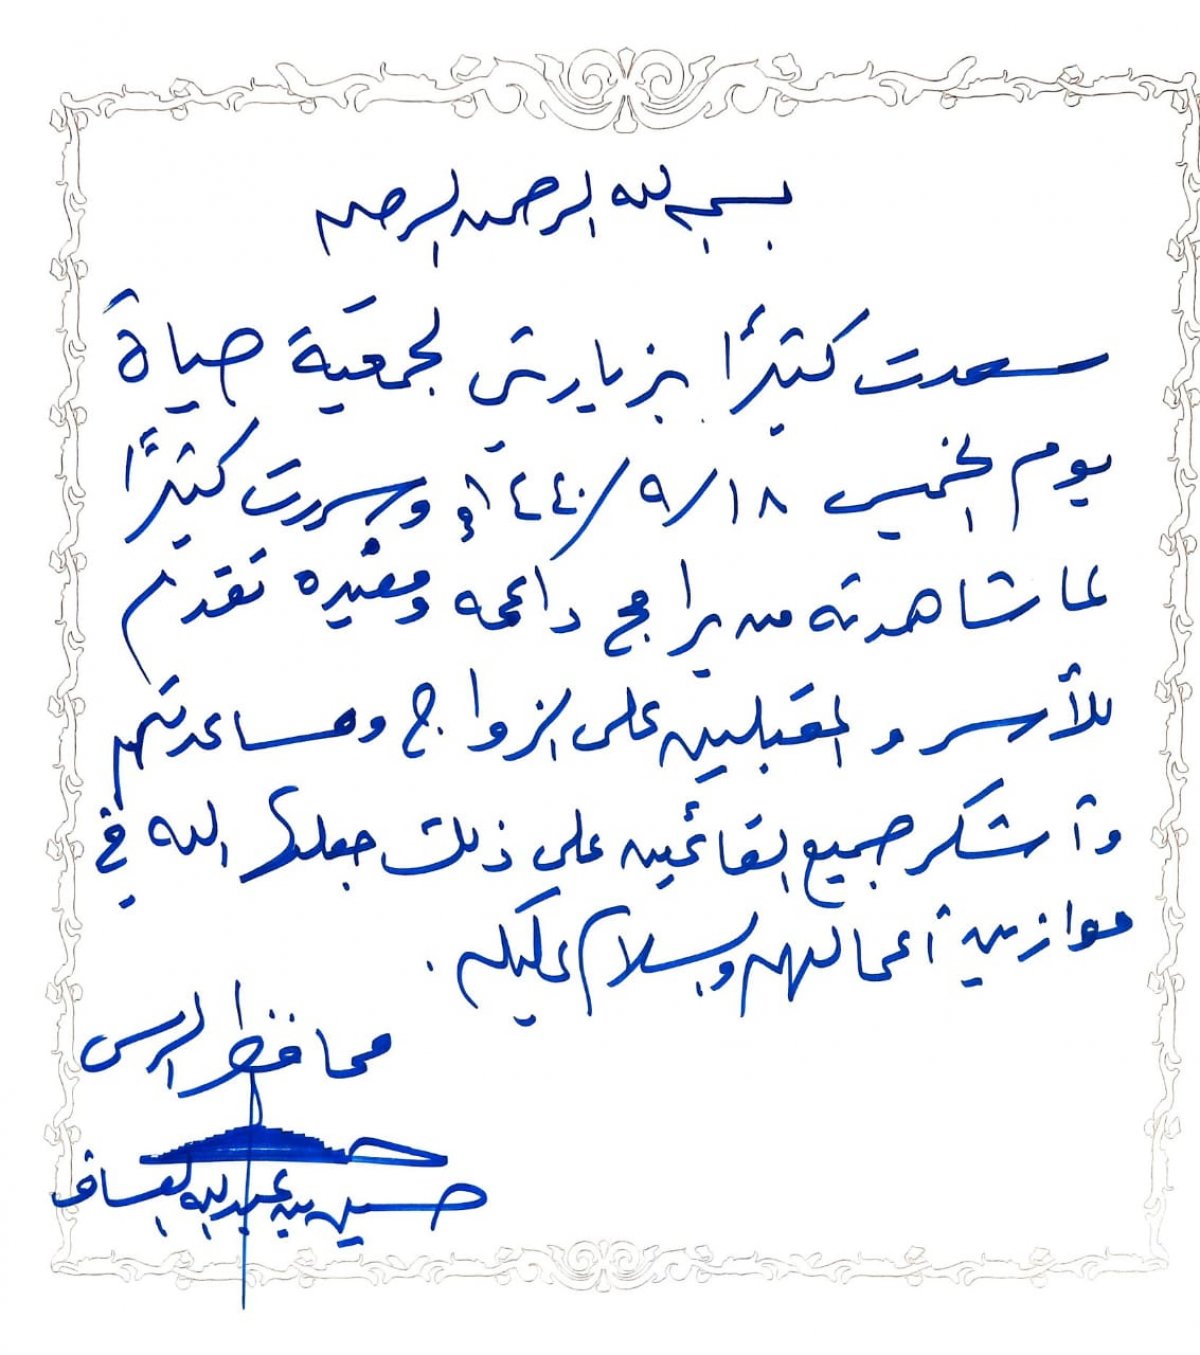 بسم الله الرحمن الرحيم
سعدت كثيرًا بزيارتي لجمعية حياة
يوم الخميس ١٨/٩/١٤٤٠هـ وسررت كثيرًا
لما شاهدته من برامج داعمه ومفيده تقدم
للأسر والمقبلين على الزواج ومساعدتهم
وأشكر جميع القائمين على ذلك جعلها الله في
موازين أعمالهم والسلام عليكم .
محافظ الرس
حسين بن عبدالله العساف